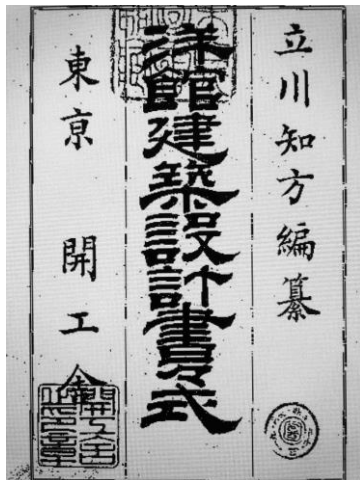 立川知方編纂
洋館建築設計書式
東京 開工舎